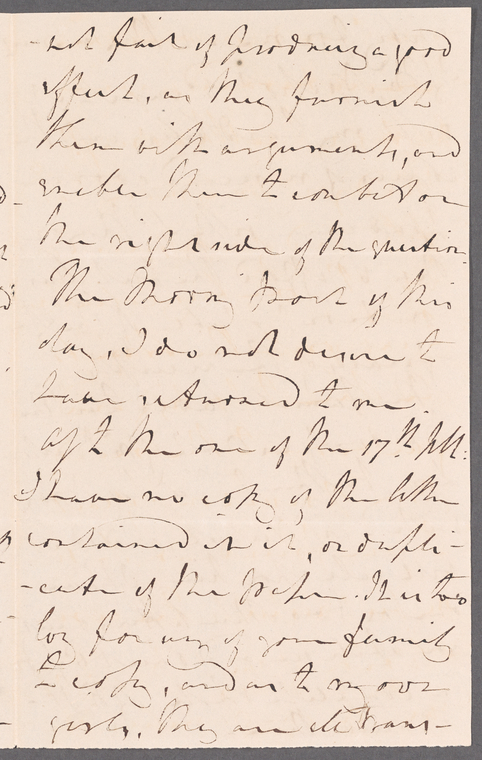 not fail of producing a good
effect, as they furnish
them with arguments, and
enable them to combat on
the right side of the question.
The Morning Post of this
day, I do not desire to
have returned to me.
As to the one of the 17th Ult:
I have no copy of the letter
contained in it, or dupli-
-cate of the paper. It is too
long for any of your family
to copy, and as to my own
girls, they are all trans-